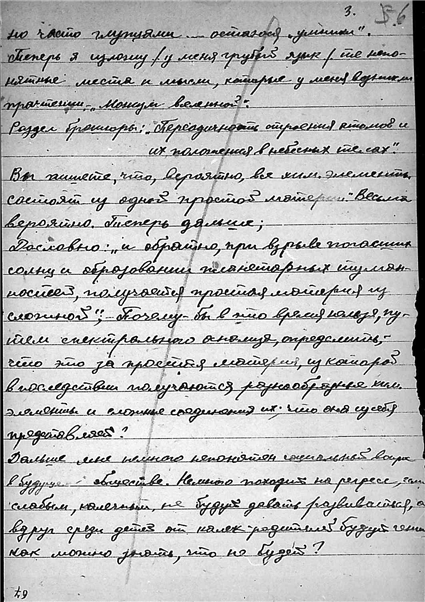 3. 6
но часто глупцами — остаюся „умным".
Теперь я изложу /у меня грубый язык/ те непо-
нятные места и мысли, которые у меня возникли
при чтении „
Раздел брошюры: „Периодичность строения атомов и
их положения в небесных телах".
Вы пишете, что, вероятно, все хим. элементы
состоят из одной простой материи. Весьма
вероятно. Теперь дальше;
Дословно: „и обратно, при взрыве погасших
солнц и образовании планетарных туман-
ностей, получается простая материя из
сложной"; — Почему-бы в это время нельзя, пу-
тем спектрального анализа, определить —
что это за простая материя, из которой
впоследствии получаются разнообразные хим.
элементы и сложные соединения их; что она из себя
представляет?
Дальше мне немного непонятен социальный вопрос
в будущем обществе. Немного походит на регресс,
слабым, калечным, не будут давать развиваться, а
вдруг среди детей от калек-родителей будут гении
как можно знать, что не будет?
67